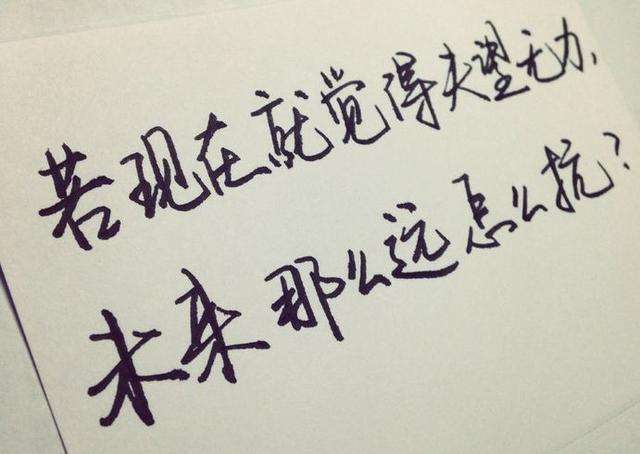 若现在就觉得失望无力、
未来那么远怎么抗？